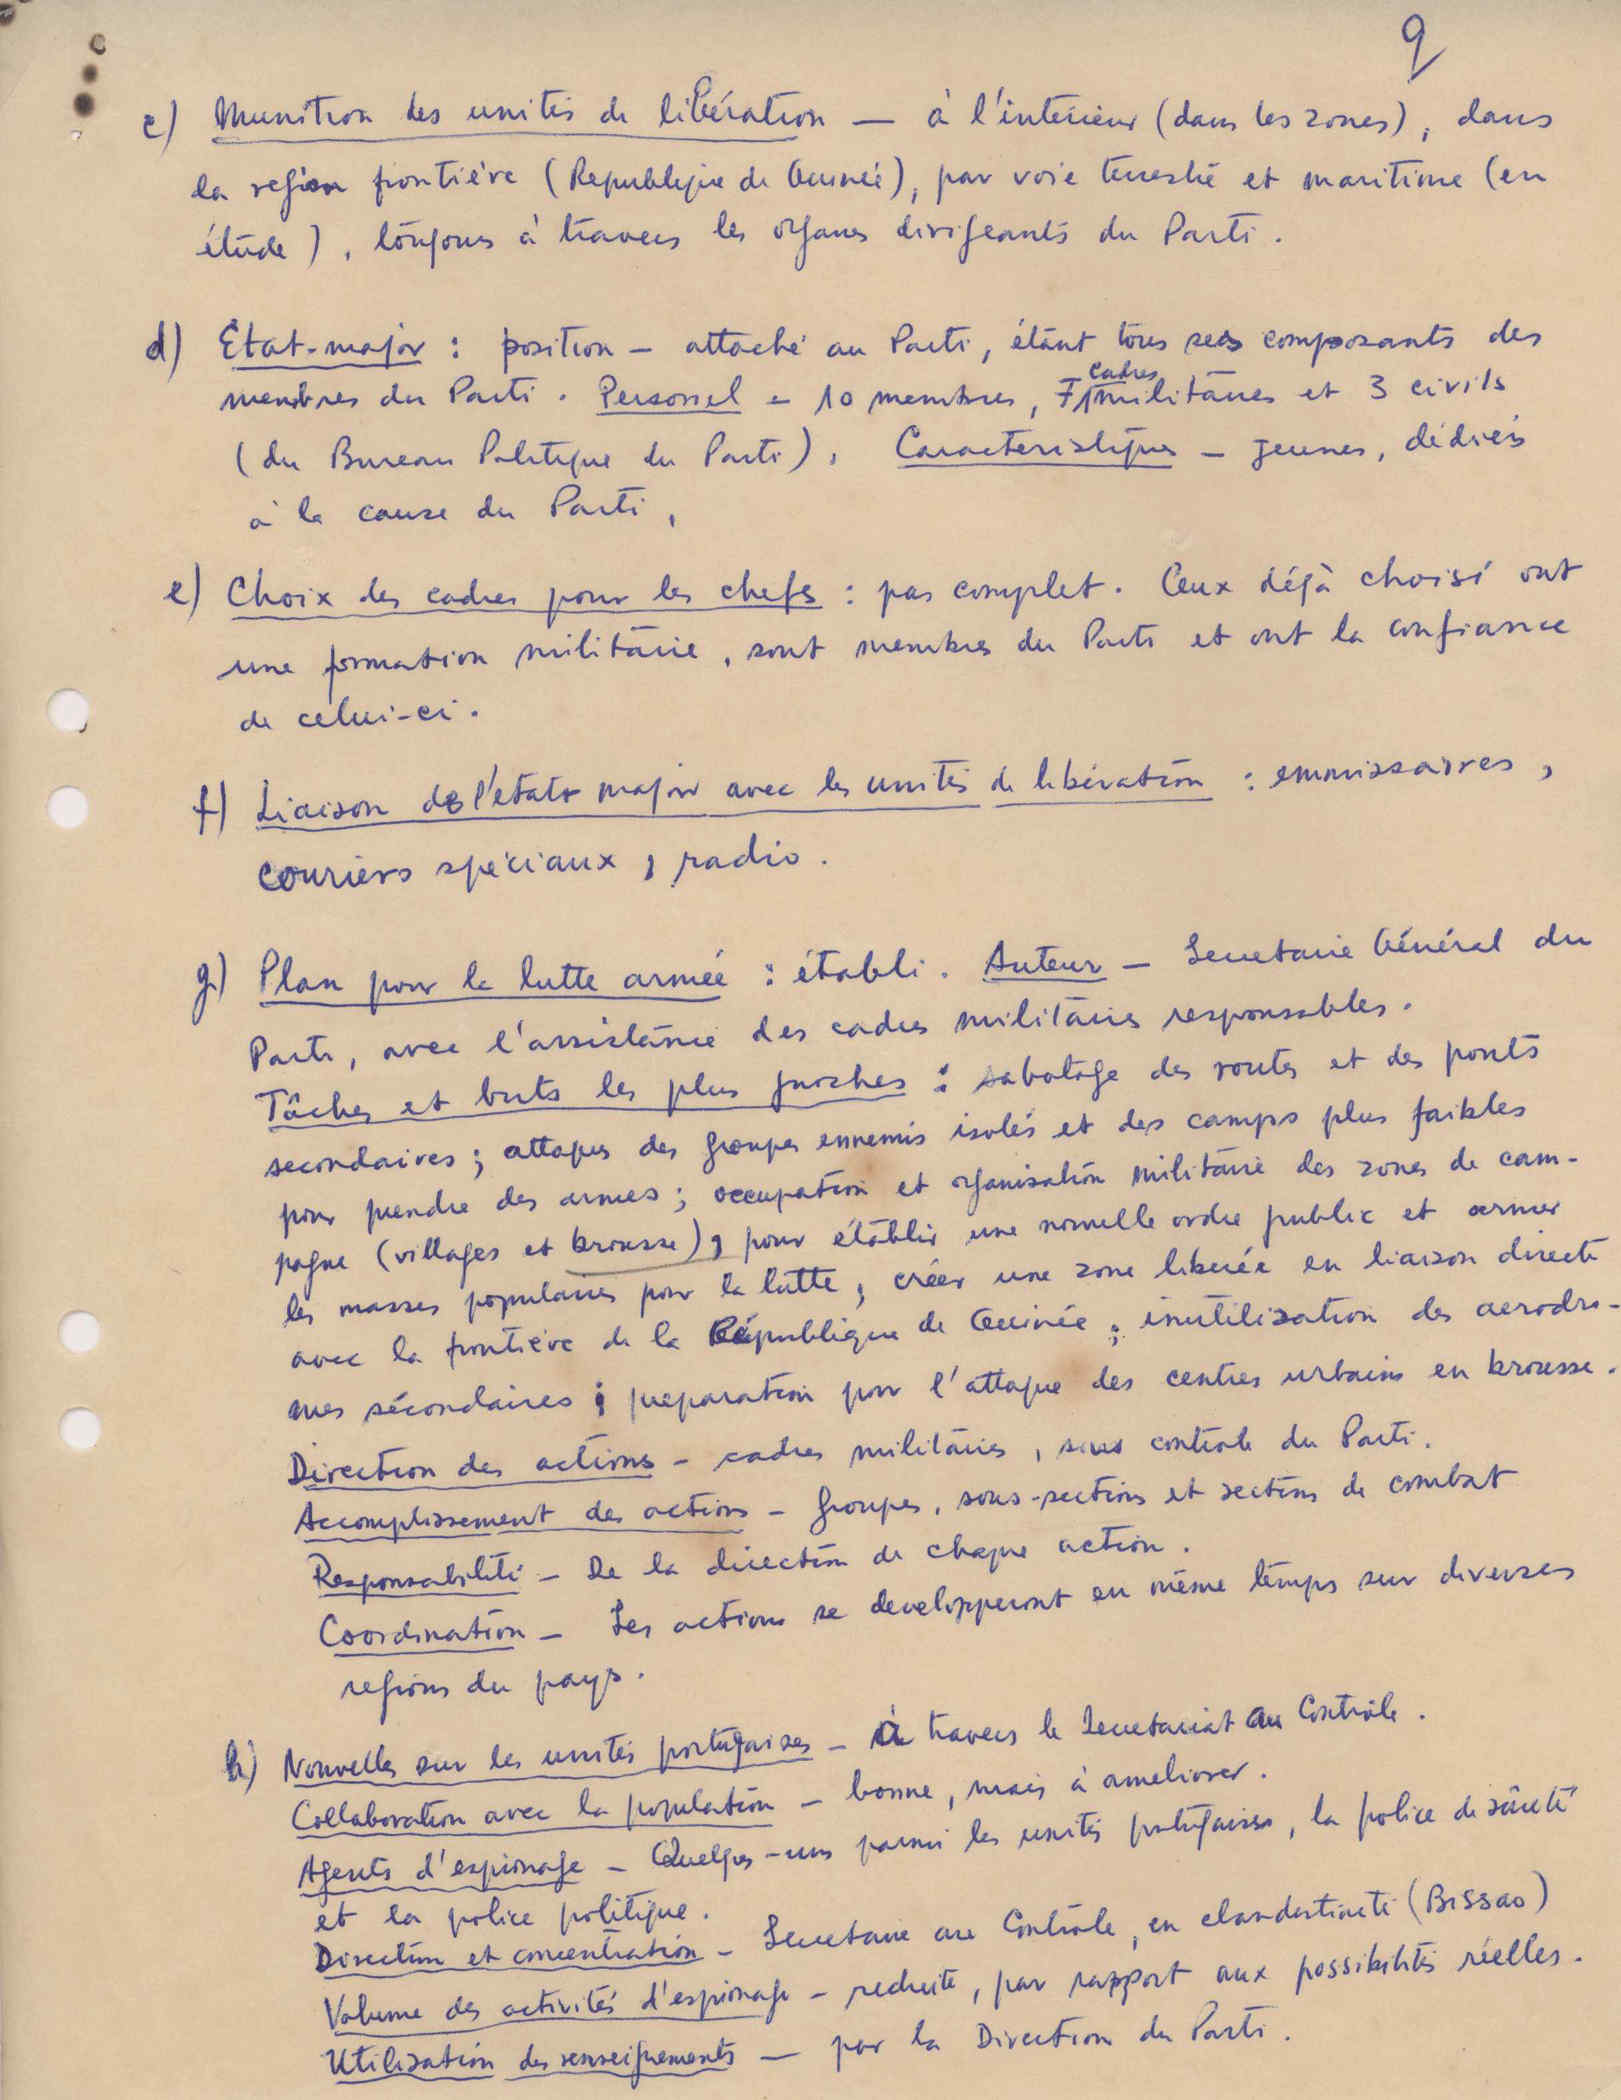 9
c) Munition des unités de libération — à l'intérieur (dans les zones), dans
la region frontière (Republique de Guinée), par voie terrestre et maritime (en
étude), toujours à travers les organes dirigeants du Parti.
d) Etat-major : position — attaché au Parti, étant tous ses composants des
membres du Parti. Personel — 10 membres, 7 cadres militaires et 3 civils
(du Bureau Politique du Parti), Caracteristiques — jeunes, dédiés
à la cause du Parti,
e) Choix des cadres pour les chefs : pas complet. Ceux déjà choisi ont
une formation militaire, sont membres du Parti et ont la confiance
de celui-ci.
f) Liaison de l'état major avec les unités de libération : emmissaires,
couriers spéciaux, radio.
g) Plan pour la lutte armée : établi. Auteur — Secretaire Général du
Parti, avec l'assistance des cadres militaires responsables.
Tâches et buts les plus proches : sabotage des routes et des ponts
secondaires ; attaques des groupes ennemis isolés et des camps plus faibles
pour prendre des armes ; occupation et organisation militaire des zones de cam-
pagne (villages et brousse), pour établir une nouvelle ordre public et armer
les masses populaires pour la lutte ; créer une zone liberée en liaison directe
avec la frontière de la République de Guinée ; inutilization des aerodro-
mes sécondaires ; preparation pour l'attaque des centres urbains en brousse.
Direction des actions — cadres militaires, sous controle du Parti.
Accomplissement des actions — groupes, sous-sections et sections de combat
Responsabilité — De la direction de chaque action.
Coordination — Les actions se developperont en même temps sur diverses
regions du pays.
h) Nouvelles sur les unités portugaises — à travers le Secretariat au Contrôle.
Collaboration avec la population — bonne, mais à ameliorer.
Agents d'espionage — Quelques-uns parmi les unités portugaises, la police de sûreté
et la police politique.
Direction et concentration — Secretaire au Contrôle, en clandestinité (Bissao)
Volume des activités d'espionage — reduite, par rapport aux possibilités réelles.
Utilisation des renseignements — par la Direction du Parti.